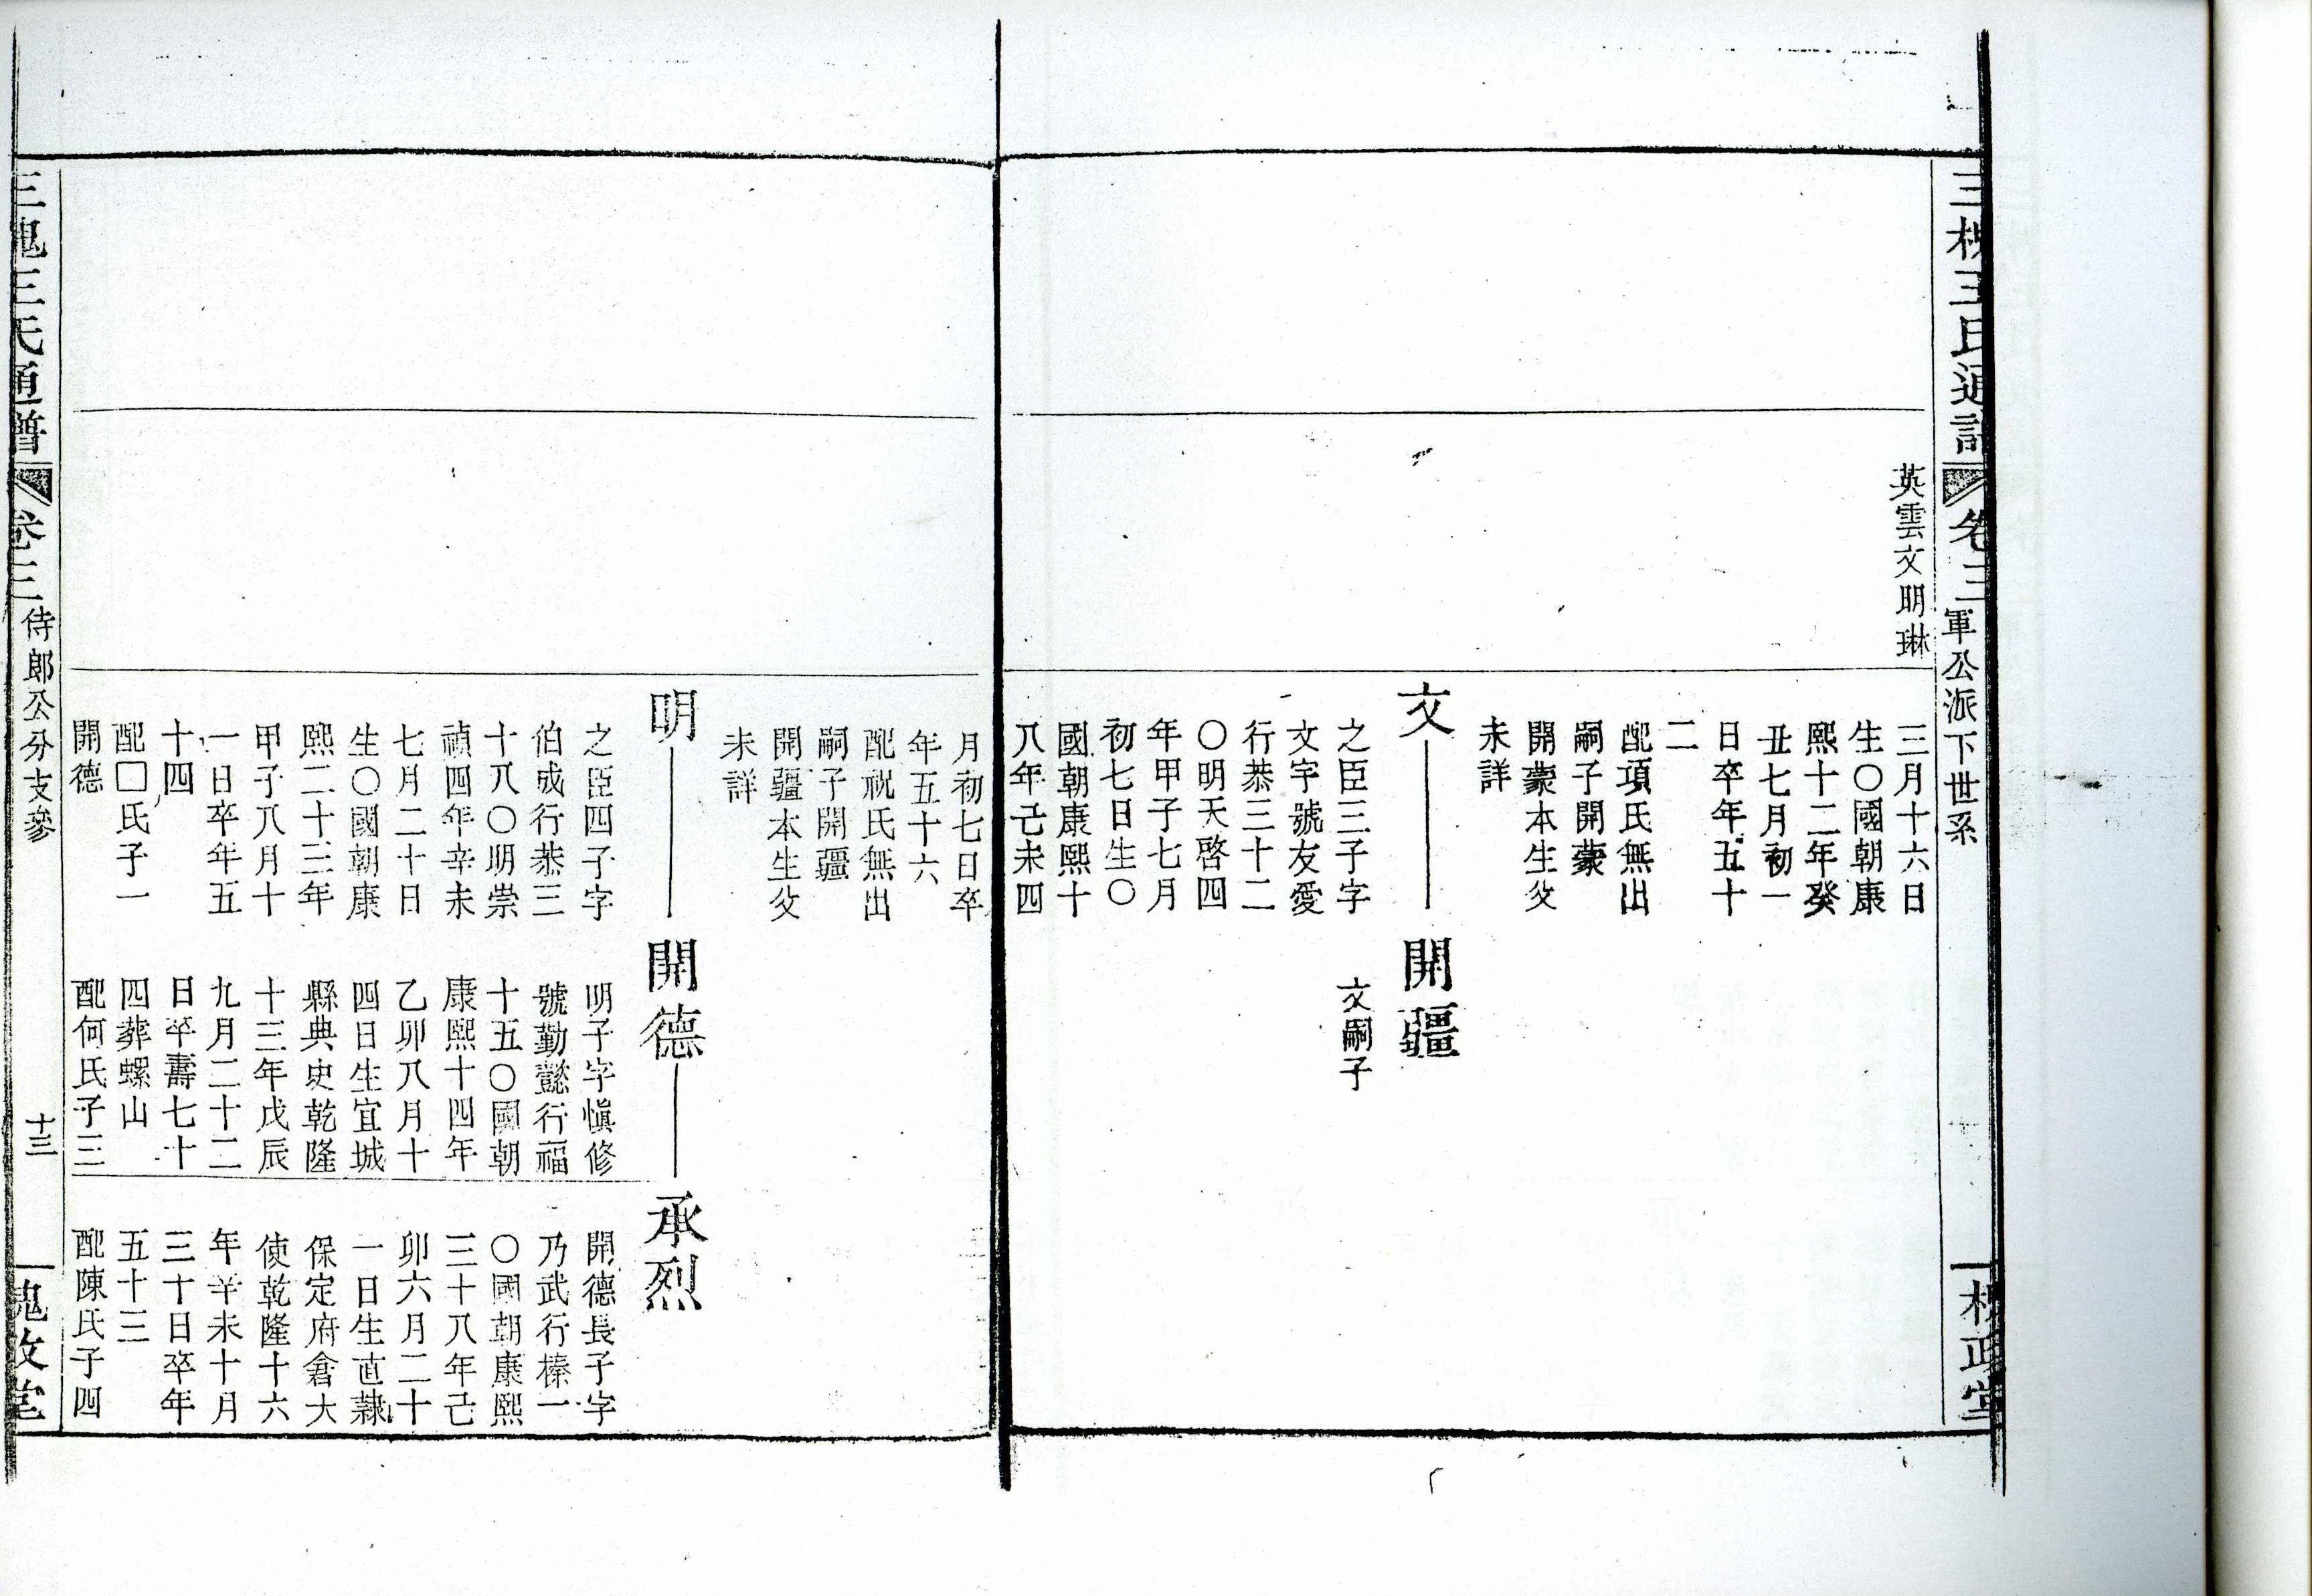 三槐王氏通譜
卷三
軍公派下世系
槐政堂
英雲文明琳
三月十六日
生〇國朝康
熙十二年癸
丑七月初一
日卒年五十
二
配項氏無出
嗣子開蒙
開蒙本生父
未詳
文
之臣三子字
文宇號友愛
行恭三十二
〇明天啓四
年甲子七月
初七日生〇
國朝康熙十
八年己未四
開疆
文嗣子
月初七日卒
年五十六
配祝氏無出
嗣子開疆
開疆本生父
未詳
明
之臣四子字
伯成行恭三
十八〇明崇
禎四年辛未
七月二十日
生〇國朝康
熙二十三年
甲子八月十
一日卒年五
十四
配囗氏子一
開德
開德
明子字愼修
號勤懿行福
十五〇國朝
康熙十四年
乙卯八月十
四日生宜城
縣典史乾隆
十三年戊辰
九月二十二
日卒壽七十
四葬螺山
配何氏子三
承烈
開德長子字
乃武行榛一
〇國朝康熙
三十八年己
卯六月二十
一日生直隸
保定府倉大
使乾隆十六
年辛未十月
三十日卒年
五十三
配陳氏子四
三槐王氏通譜
卷三
侍郎公分支參
十三
槐政堂